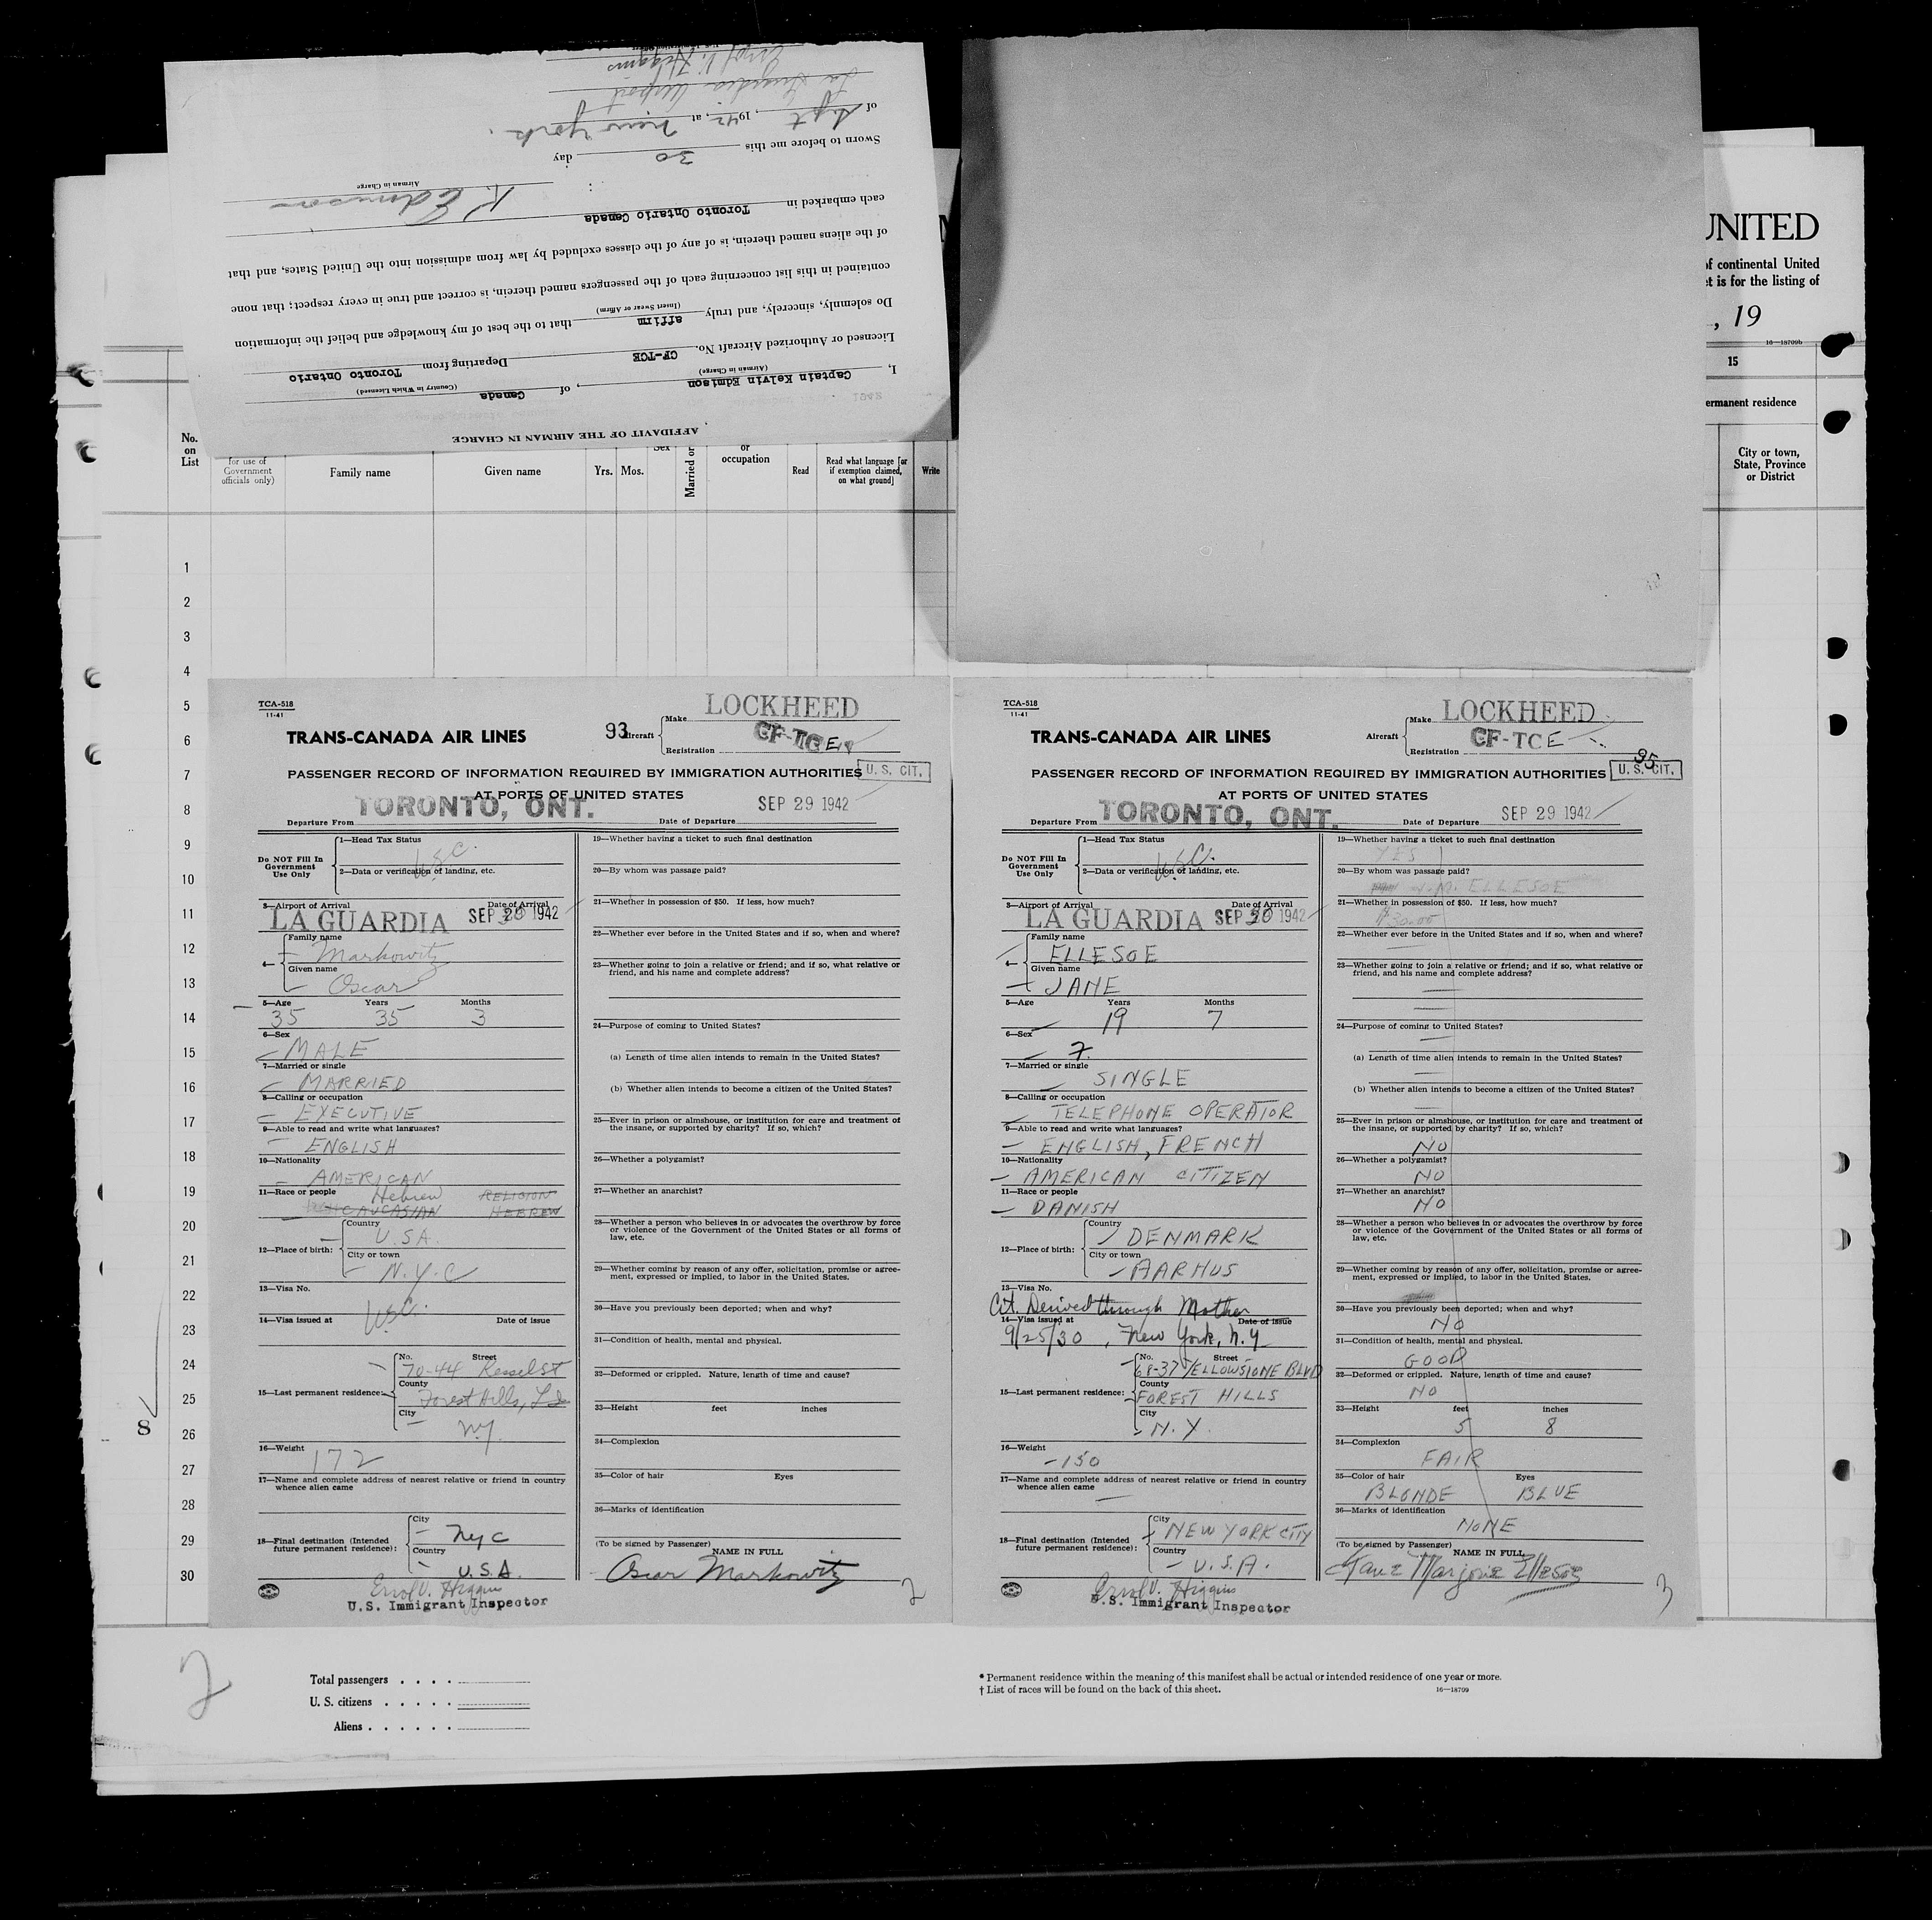 AFFIDAVIT OF THE AIRMAN IN CHARGE
I, Captain Kelvin Edmison, of Canada
(Airman in Charge) (Country in Which Licensed)
Licensed or Authorized Aircraft No. CF-TCE Departing from Toronto Ontario
Do solemnly, sincerely, and truly affirm that to the best of my knowledge and belief the information
(Insert Swear or Affirm)
contained in this list concerning each of the passengers named therein, is correct and true in every respect; that none
of the aliens named therein, is of any of the classes excluded by law from admission into the United States, and that
each embarked in Toronto Ontario Canada
K Edmison
Airman in Charge
Sworn to before me this 30 day
of Sept, 1942, at New York.
La Guardia Airport
Errol V. Higgins
UNITED
of continental United
et is for the listing of
, 19
16—18709b
15
ermanent residence
City or town,
State, Province
or District
No.
on
List
for use of
Government
officials only)
Family name
Given name
Yrs. Mos.
Sex
Married or
or
occupation
Read
Read what language [or
if exemption claimed,
on what ground]
Write
1
2
3
4
5
6
7
8
9
10
11
12
13
14
15
16
17
18
19
20
21
22
23
24
25
26
27
28
29
30
8
TCA-518
11-41
TRANS-CANADA AIR LINES
93
Aircraft
Make LOCKHEED
Registration CF-TCE
PASSENGER RECORD OF INFORMATION REQUIRED BY IMMIGRATION AUTHORITIES
U. S. CIT.
AT PORTS OF UNITED STATES
Departure From TORONTO, ONT. Date of Departure SEP 29 1942
Do NOT Fill In
Government
Use Only
1—Head Tax Status
USC.
2—Data or verification of landing, etc.
3—Airport of Arrival Date of Arrival
LA GUARDIA SEP 30 1942
4— Family name
Markowitz
Given name
Oscar
5—Age Years Months
35 35 3
6—Sex
MALE
7—Married or single
MARRIED
8—Calling or occupation
EXECUTIVE
9—Able to read and write what languages?
ENGLISH
10—Nationality
AMERICAN
11—Race or people Hebrew RELIGION
CAUCASIAN HEBREW
12—Place of birth:
Country
U.S.A.
City or town
N.Y.C
13—Visa No.
USC.
14—Visa issued at Date of issue
15—Last permanent residence:
No. Street
70-44 Kessel St
County
Forest Hills, L I
City
N.Y.
16—Weight
172
17—Name and complete address of nearest relative or friend in country
whence alien came
18—Final destination (Intended
future permanent residence):
City
NYC
Country
U.S.A.
Errol V. Higgins
U.S. Immigrant Inspector
19—Whether having a ticket to such final destination
20—By whom was passage paid?
21—Whether in possession of $50. If less, how much?
22—Whether ever before in the United States and if so, when and where?
23—Whether going to join a relative or friend; and if so, what relative or
friend, and his name and complete address?
24—Purpose of coming to United States?
(a) Length of time alien intends to remain in the United States?
(b) Whether alien intends to become a citizen of the United States?
25—Ever in prison or almshouse, or institution for care and treatment of
the insane, or supported by charity? If so, which?
26—Whether a polygamist?
27—Whether an anarchist?
28—Whether a person who believes in or advocates the overthrow by force
or violence of the Government of the United States or all forms of
law, etc.
29—Whether coming by reason of any offer, solicitation, promise or agree-
ment, expressed or implied, to labor in the United States.
30—Have you previously been deported; when and why?
31—Condition of health, mental and physical.
32—Deformed or crippled. Nature, length of time and cause?
33—Height feet inches
34—Complexion
35—Color of hair Eyes
36—Marks of identification
(To be signed by Passenger)
NAME IN FULL
Oscar Markowitz
2
TCA-518
11-41
TRANS-CANADA AIR LINES
Aircraft
Make LOCKHEED
Registration CF-TCE
95
PASSENGER RECORD OF INFORMATION REQUIRED BY IMMIGRATION AUTHORITIES
U. S. CIT.
AT PORTS OF UNITED STATES
Departure From TORONTO, ONT. Date of Departure SEP 29 1942
Do NOT Fill In
Government
Use Only
1—Head Tax Status
USC.
2—Data or verification of landing, etc.
3—Airport of Arrival Date of Arrival
LA GUARDIA SEP 30 1942
4— Family name
ELLESOE
Given name
JANE
5—Age Years Months
19 7
6—Sex
F.
7—Married or single
SINGLE
8—Calling or occupation
TELEPHONE OPERATOR
9—Able to read and write what languages?
ENGLISH, FRENCH
10—Nationality
AMERICAN CITIZEN
11—Race or people
DANISH
12—Place of birth:
Country
DENMARK
City or town
AARHUS
13—Visa No.
Cit. Derived through Mother
14—Visa issued at Date of issue
9/25/30, New York, N.Y
15—Last permanent residence:
No. Street
68-37 YELLOWSTONE BLVD
County
FOREST HILLS
City
N.Y.
16—Weight
150
17—Name and complete address of nearest relative or friend in country
whence alien came
18—Final destination (Intended
future permanent residence):
City
NEW YORK CITY
Country
U.S.A.
Errol V. Higgins
U.S. Immigrant Inspector
19—Whether having a ticket to such final destination
YES
20—By whom was passage paid?
M. ELLESOE
21—Whether in possession of $50. If less, how much?
$30.00
22—Whether ever before in the United States and if so, when and where?
23—Whether going to join a relative or friend; and if so, what relative or
friend, and his name and complete address?
24—Purpose of coming to United States?
(a) Length of time alien intends to remain in the United States?
(b) Whether alien intends to become a citizen of the United States?
25—Ever in prison or almshouse, or institution for care and treatment of
the insane, or supported by charity? If so, which?
NO
26—Whether a polygamist?
NO
27—Whether an anarchist?
NO
28—Whether a person who believes in or advocates the overthrow by force
or violence of the Government of the United States or all forms of
law, etc.
29—Whether coming by reason of any offer, solicitation, promise or agree-
ment, expressed or implied, to labor in the United States.
30—Have you previously been deported; when and why?
NO
31—Condition of health, mental and physical.
GOOD
32—Deformed or crippled. Nature, length of time and cause?
NO
33—Height feet inches
5 8
34—Complexion
FAIR
35—Color of hair Eyes
BLONDE BLUE
36—Marks of identification
NONE
(To be signed by Passenger)
NAME IN FULL
Jane Marjorie Ellesoe
3
2
Total passengers . . . .
U. S. citizens . . . . .
Aliens . . . . . .
* Permanent residence within the meaning of this manifest shall be actual or intended residence of one year or more.
† List of races will be found on the back of this sheet.
16—18709